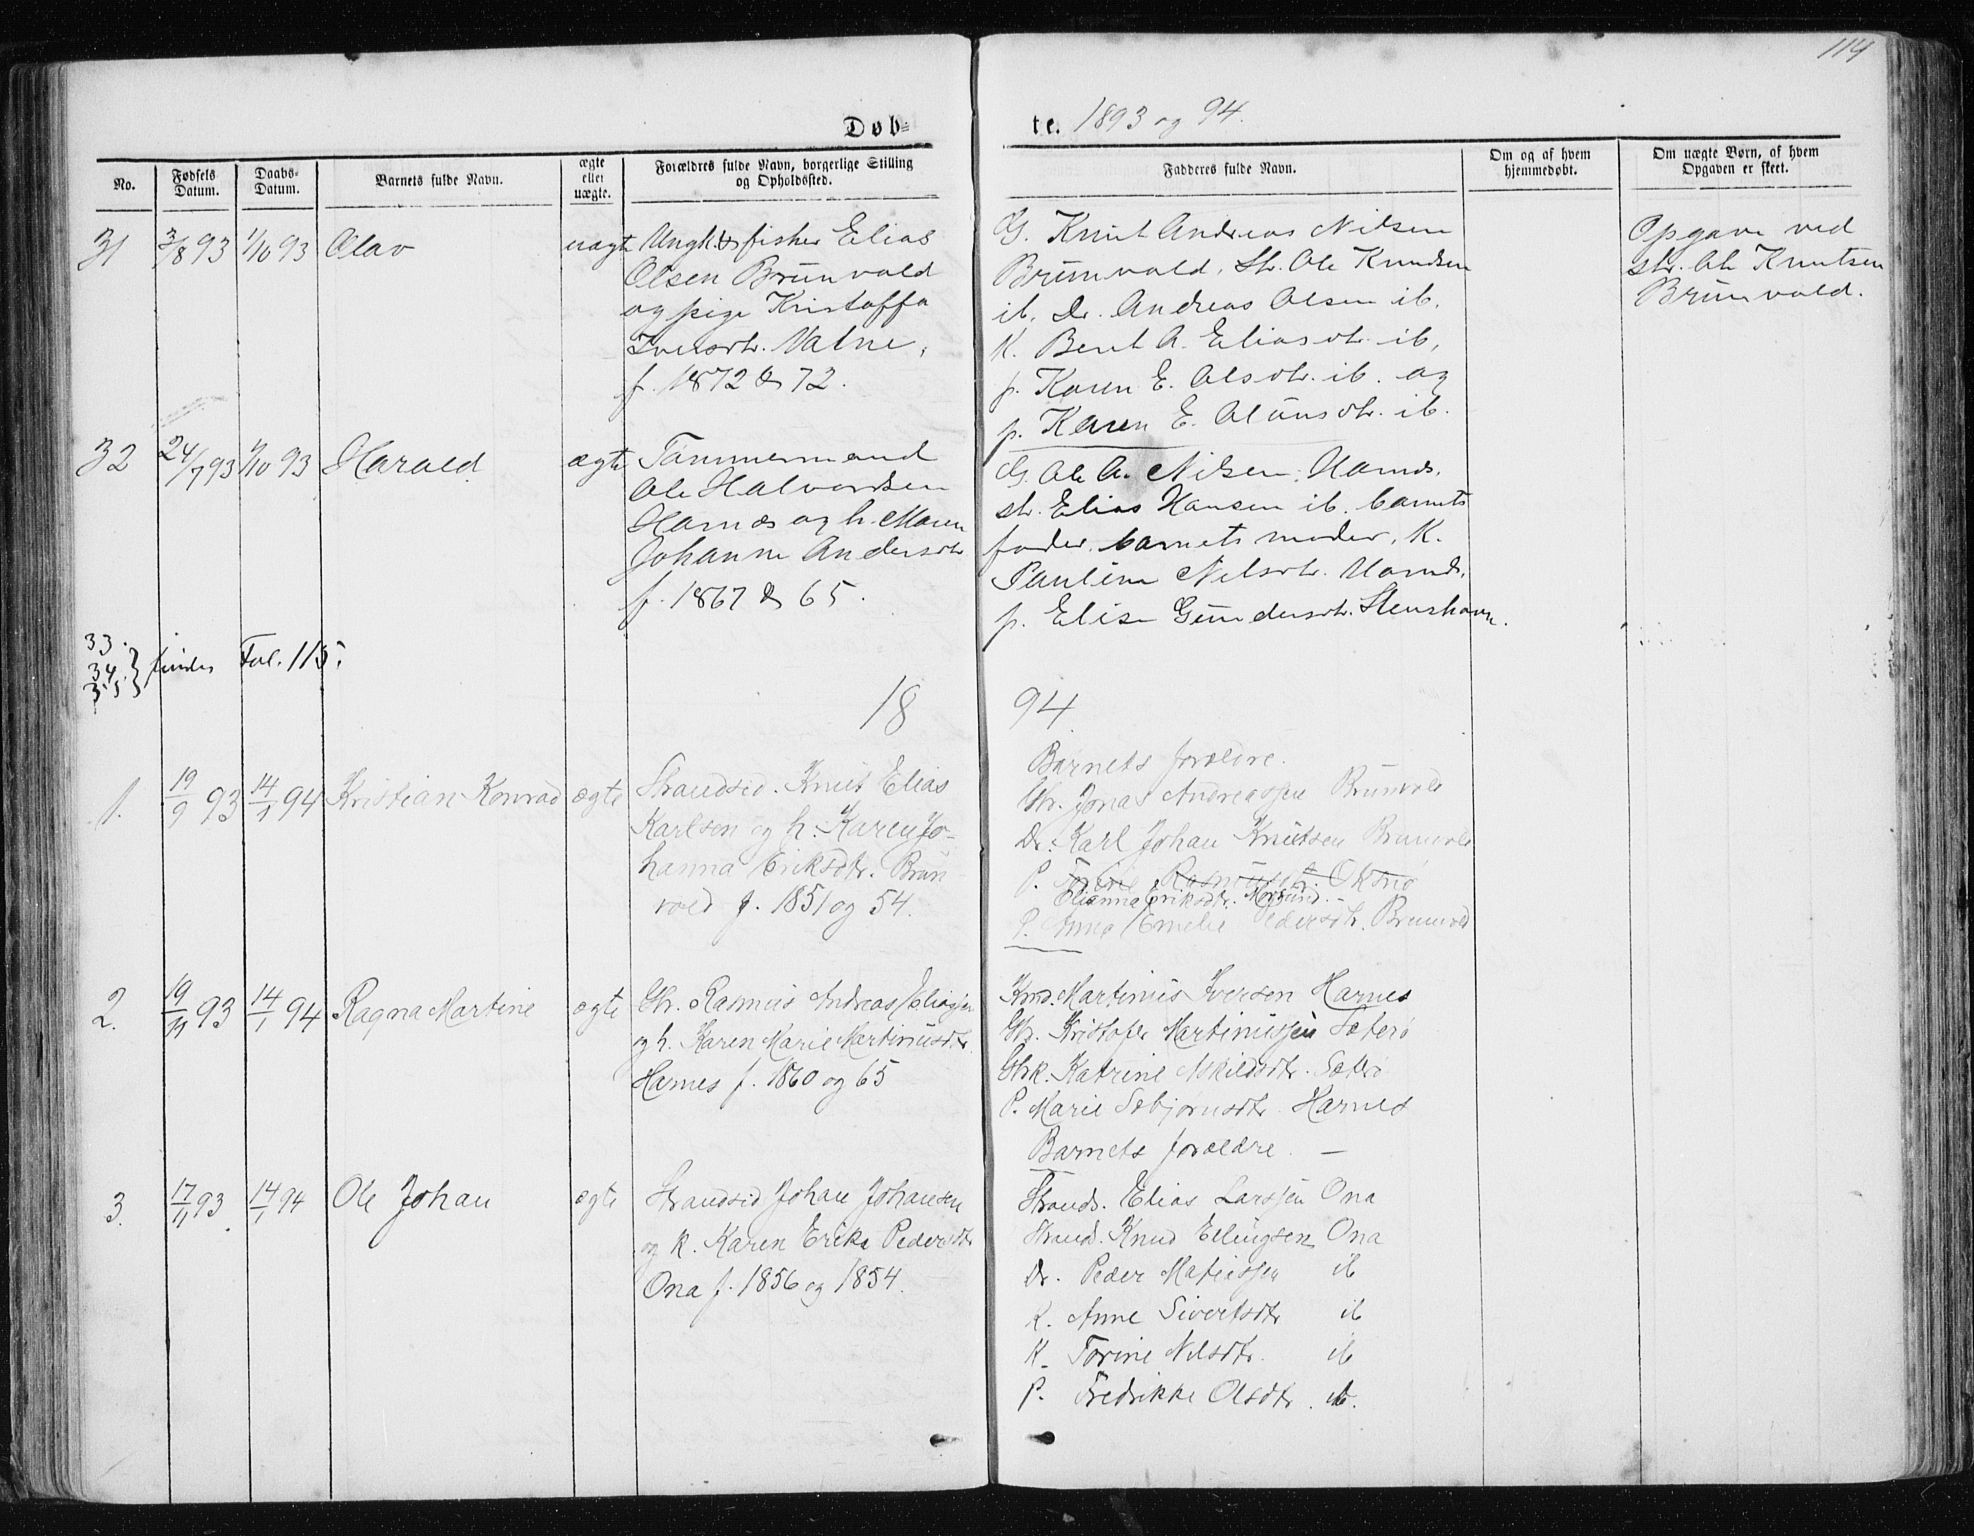 114
Døb=
te. 1893 og 94.
No.
Fødsels Datum.
Daabs-Datum.
Barnets fulde Navn.
ægte eller uægte.
Forældres fulde Navn, borgerlige Stilling og Opholdssted.
Fadderes fulde Navn.
Om og af hvem hjemmedøbt.
Om uægte Børn, af hvem Opgaven er skeet.
31
3/8 93
1/10 93
Olav
uægte
Ungk. & fisker Elias
Olsen Brunvold
og pige Kristoffa
Iversdtr. Vatne,
f. 1872 & 72.
G. Knut Andreas Nilsen
Brunvold, Str. Ole Knudsen
ib. Dr. Andreas Olsen ib.
K. Berit A. Eliasdtr. ib,
p. Karen E. Olsdtr. ib. og
p. Karen E. Olünsdtr. ib.
Opgave ved
str. Ole Knutsen
Brunvold.
32
24/7 93
1/10 93
Harald
ægte
Tømmermand
Ole Halvordsen
Harnæs og h. Maren
Johanne Andersdtr
f. 1867 & 65.
G. Ole A. Nilsen, Harnæs.
str. Elias Hansen ib. barnets
fader, barnets moder, K.
Pauline Nilsdtr. Harnæs,
p. Elise Gundersdtr. Stenshavn.
33.
34.
35
} findes Fol. 115.
18 94
1.
19/9 93
14/1 94
Kristian Konrad
ægte
Strandsid. Knut Elias
Karlsen og h. Karen Jo-
hanna Eriksdtr. Brun
vold f. 1851 og 54.
Barnets forældre.
Gbr. Jonas Andreassen Brunvold
Dr. Karl Johan Knutsen Brunvold
P. Rasmusdt Oksnø
Elianna Eriksdtr. Magsund.
P. Anne Emelie Pedersdtr. Brunvold
2.
19/11 93
14/1 94
Ragna Martine
ægte
Gbr. Rasmus Andreas Eliassen
og h. Karen Marie Martinusdtr.
Harnes f. 1860 og 65
Kmd. Martinus Iversen Harnes
Gbr. Kristofer Martinussen Sæterø
Gbrk. Katrine Askildsdtr. Sæterø
P. Marie Sebjørnsdtr Harnes
Barnets forældre. —
3.
17/11 93
14/1 94
Ole Johan
ægte
Strandsid Johan Johansen
og k. Karen Erika Pedersdtr
Ona f. 1856 og 1854.
Strands. Elias Larssen Ona
Strand. Knud Ellingsen Ona
Dr. Peder Matiassen ib
K. Anne Sivertsdtr ib
K. Torine Nilsdtr. ib
P. Fredrikke Olsdtr. ib.